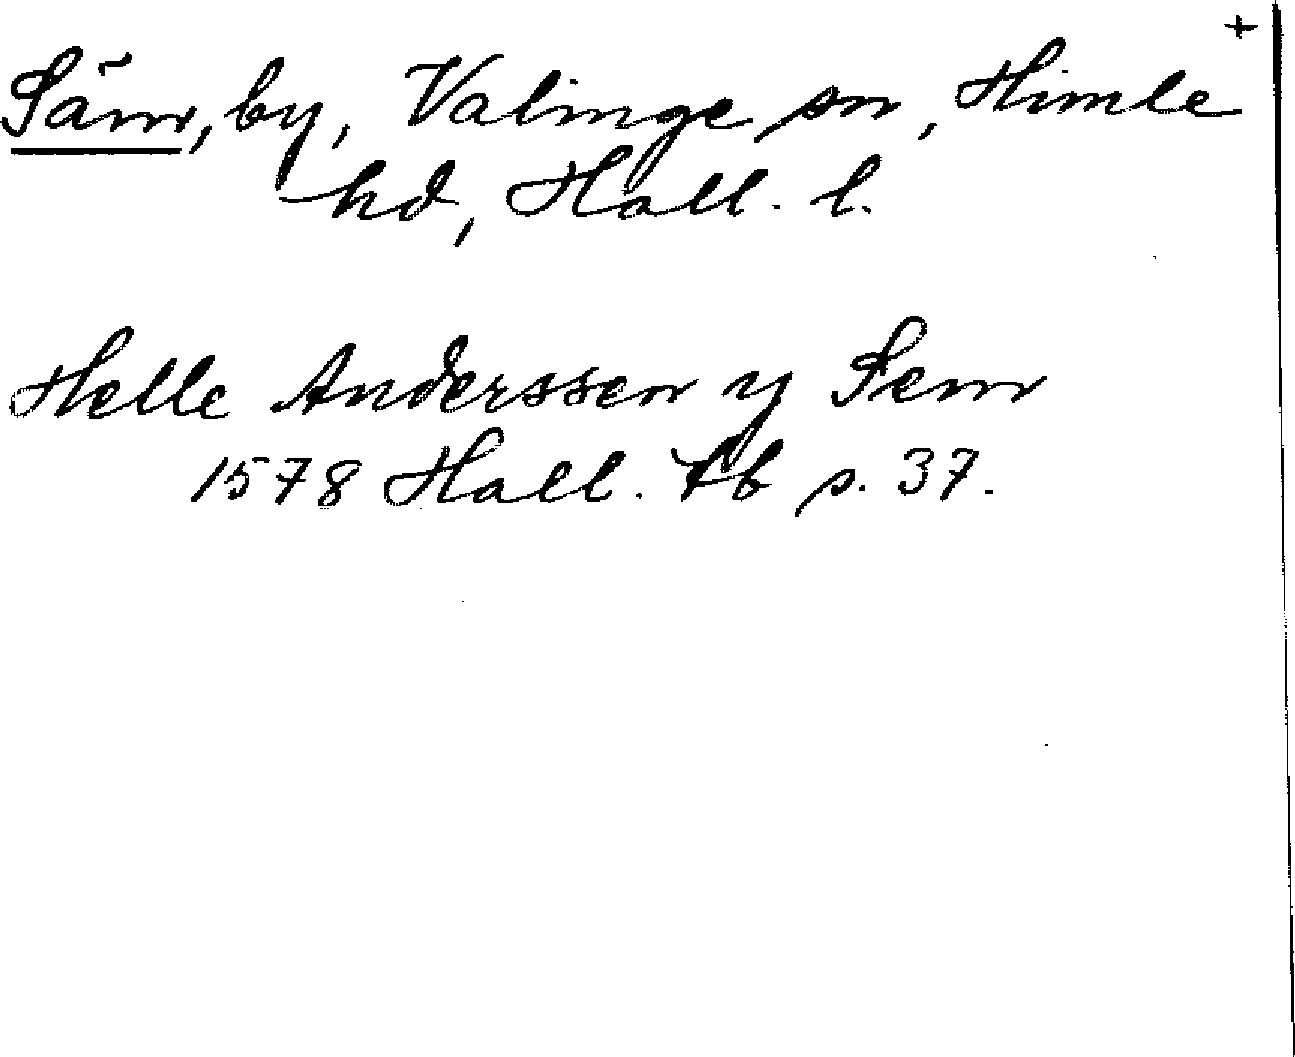 +
Säm, by, Valinge sn, Himle
hd, Hall. l.
Helle Anderssen y Sem
1578 Hall. Tb s. 37.